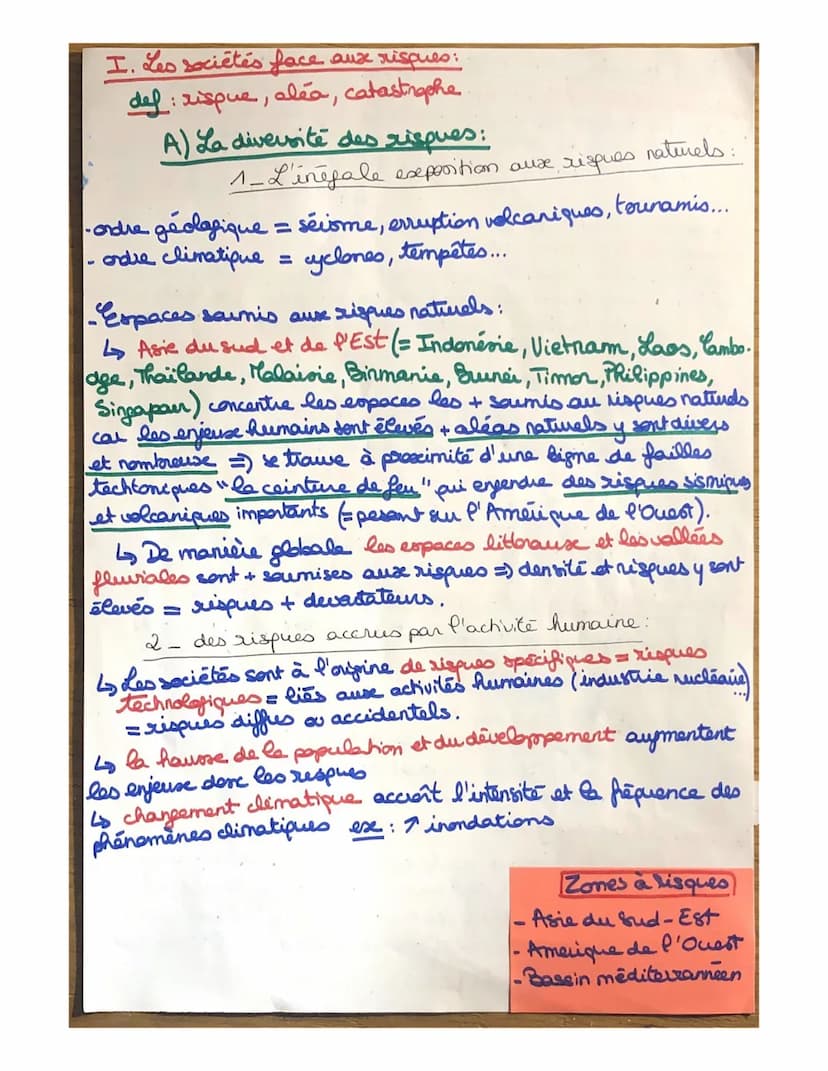 I. Les sociétés face aux risques:
def : risque, aléa, catastrophe
A) La diversité des risques:
1_ L'inégale exposition aux risques naturels:
- ordre géologique = séisme, erruption volcaniques, tsunamis...
- ordre climatique = cyclones, tempêtes...
- Espaces soumis aux risques naturels:
↳ Asie du sud et de l'Est (= Indonésie, Vietnam, Laos, Cambo-
dge, Thaïlande, Malaisie, Birmanie, Brunei, Timor, Philippines,
Singapour) concentre les espaces les + soumis au risques naturels
car les enjeux humains sont élevés + aléas naturels y sont divers
et nombreux => se trouve à proximité d'une ligne de failles
techtoniques "la ceinture de feu" qui engendre des risques sismiques
et volcaniques importants (= pesant sur l'Amérique de l'Ouest).
↳ De manière globale les espaces littoraux et les vallées
fluviales sont + soumises aux risques => densité et risques y sont
élevés = risques + devastateurs.
2_ des risques accrus par l'activité humaine:
↳ Les sociétés sont à l'origine de risques spécifiques = risques
technologiques = liés aux activités humaines (industrie nucléaire...)
= risques diffus ou accidentels.
↳ la hausse de la population et du développement augmentent
les enjeux donc les risques
↳ changement climatique accroît l'intensité et la fréquence des
phénomènes climatiques ex : ↗ inondations
Zones à risques
- Asie du Sud-Est
- Amérique de l'Ouest
- Bassin méditerranéen